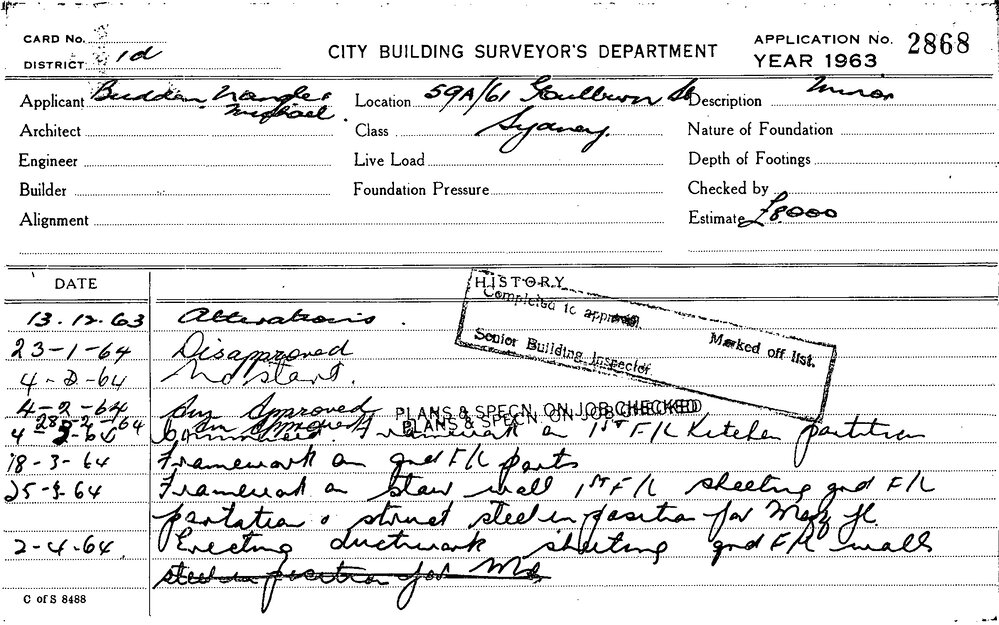 CARD No.
DISTRICT 1d
CITY BUILDING SURVEYOR'S DEPARTMENT
APPLICATION No. 2868
YEAR 1963
Applicant Budden, Nangle & Michael.
Location 59A/61 Goulburn St
Description Minor
Architect
Class Sydney.
Nature of Foundation
Engineer
Live Load
Depth of Footings
Builder
Foundation Pressure
Checked by
Alignment
Estimate £8000
DATE
HISTORY
Completed to approval.
Marked off list.
Senior Building Inspector
13.12.63 Alterations.
23-1-64 Disapproved
4-2-64 No start.
4-2-64 Approved PLANS & SPECN ON JOB CHECKED
28-2-64 Approved PLANS & SPECN ON JOB CHECKED
4-3-64 Commenced. Framework on 1ST F/L Kitchen partition
18-3-64 Framework on gnd F/L parts
25-3-64 Framework on stair wall 1ST F/L sheeting gnd F/L
partation & struct steel in position for Mezz fl.
2-4-64. Erecting ductwork sheeting gnd F/L walls
steel in position for
C of S 8488